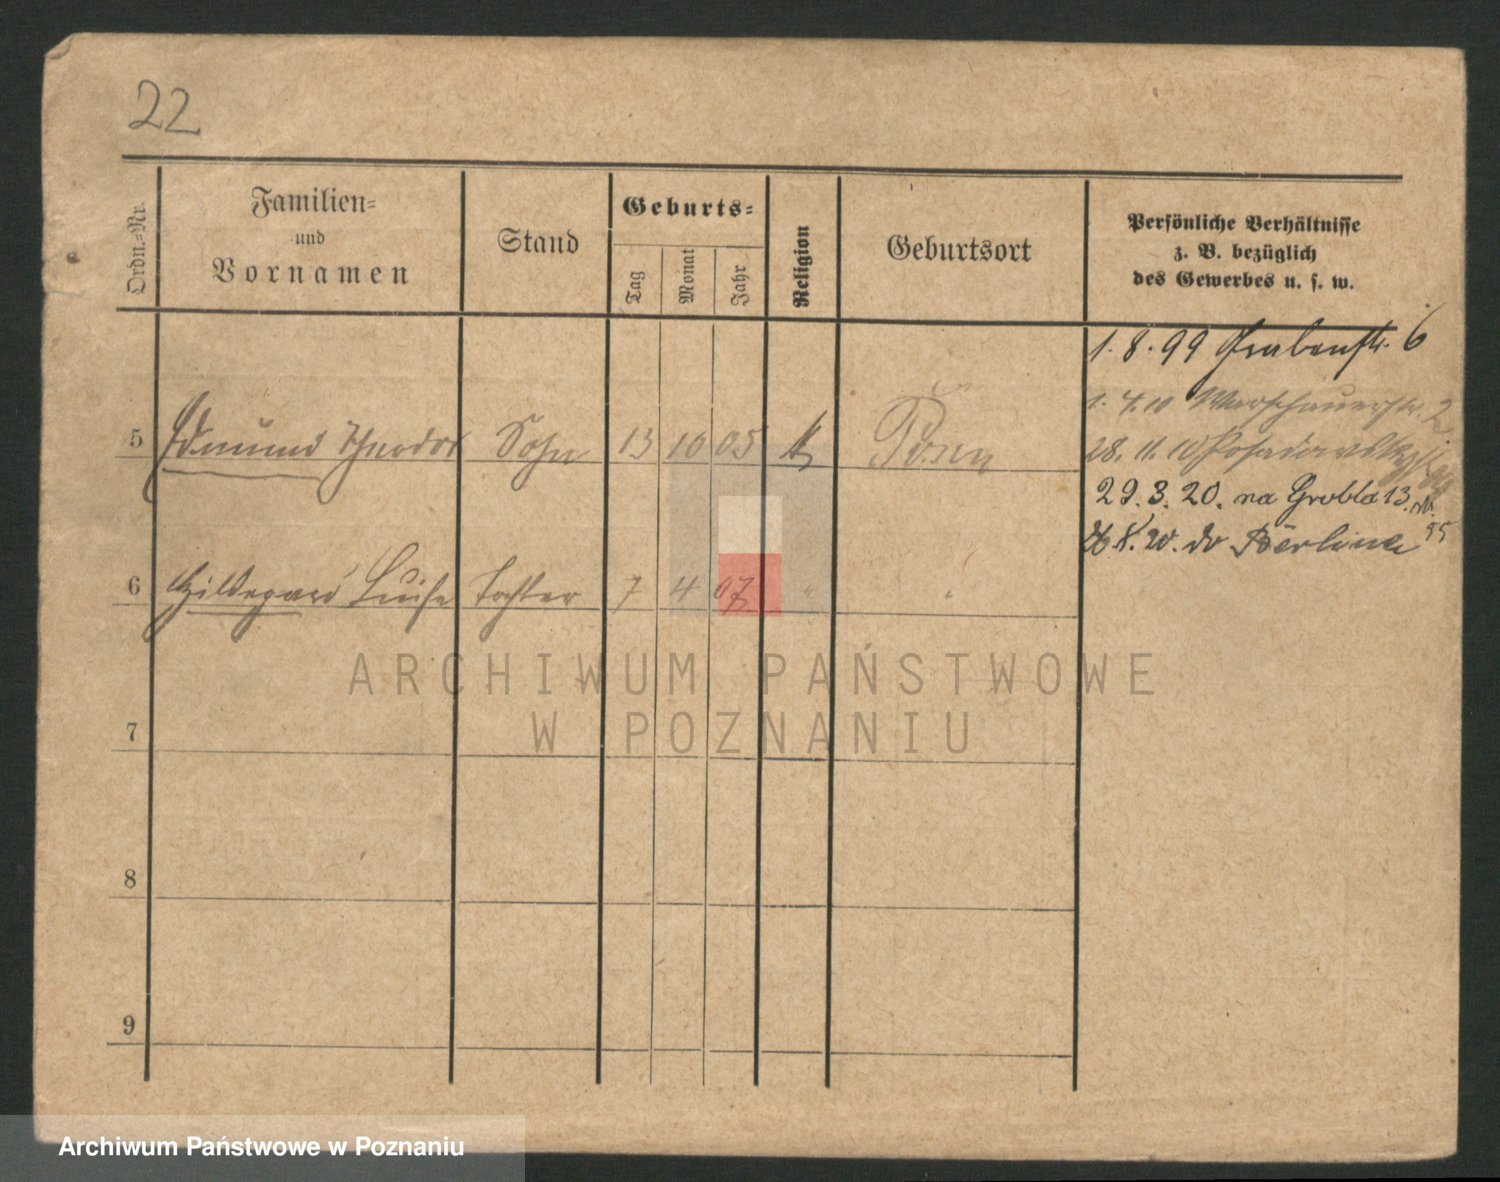 22
Ordn.-Nr.
Familien-
und
Vornamen
Stand
Geburts-
Tag
Monat
Jahr
Religion
Geburtsort
Persönliche Verhältnisse
z. B. bezüglich
des Gewerbes u. s. w.
1. 8. 99 Grabenstr. 6
1. 4. 10 Warschauerstr. 2
5 Edmund Theodor Sohn 13 10 05 k Posen
28. 11. 10
29. 3. 20. na Grobla 13.
8. 20. do Berlina
6 Hildegard Luise Tochter 7 4 07 " "
ARCHIWUM PAŃSTWOWE
W POZNANIU
7
8
9
Archiwum Państwowe w Poznaniu